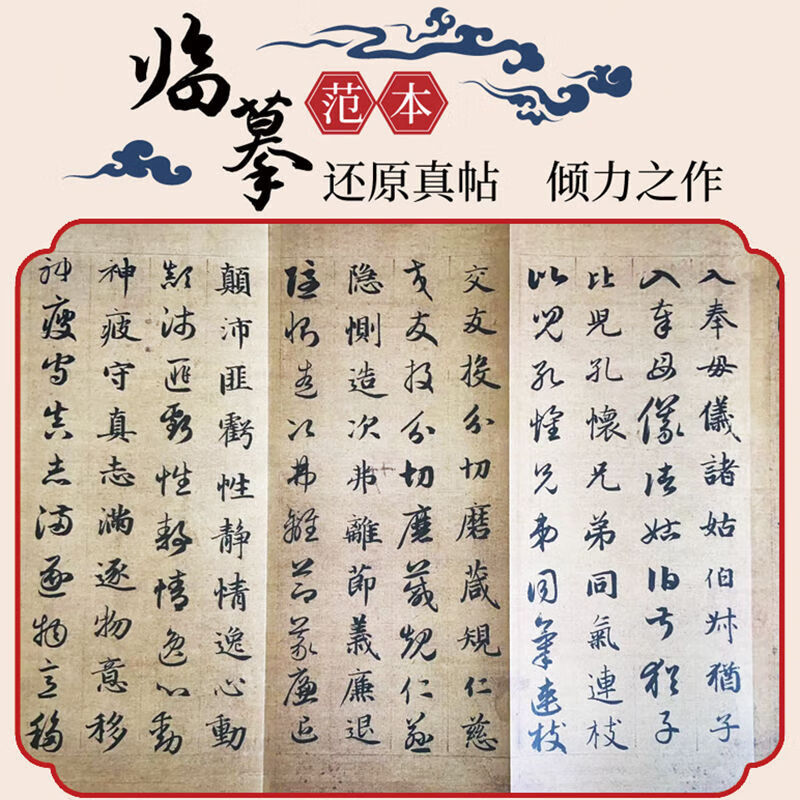 临摹
范本
还原真帖 倾力之作
入奉母儀諸姑伯叔猶子
入奉母儀諸姑伯叔猶子
比兒孔懷兄弟同氣連枝
比兒孔懷兄弟同氣連枝
交友投分切磨葴規仁慈
交友投分切磨葴規仁慈
隐惻造次弗離節義廉退
隐惻造次弗離節義廉退
顛沛匪虧性静情逸心動
顛沛匪虧性静情逸心動
神疲守真志满逐物意移
神疲守真志满逐物意移